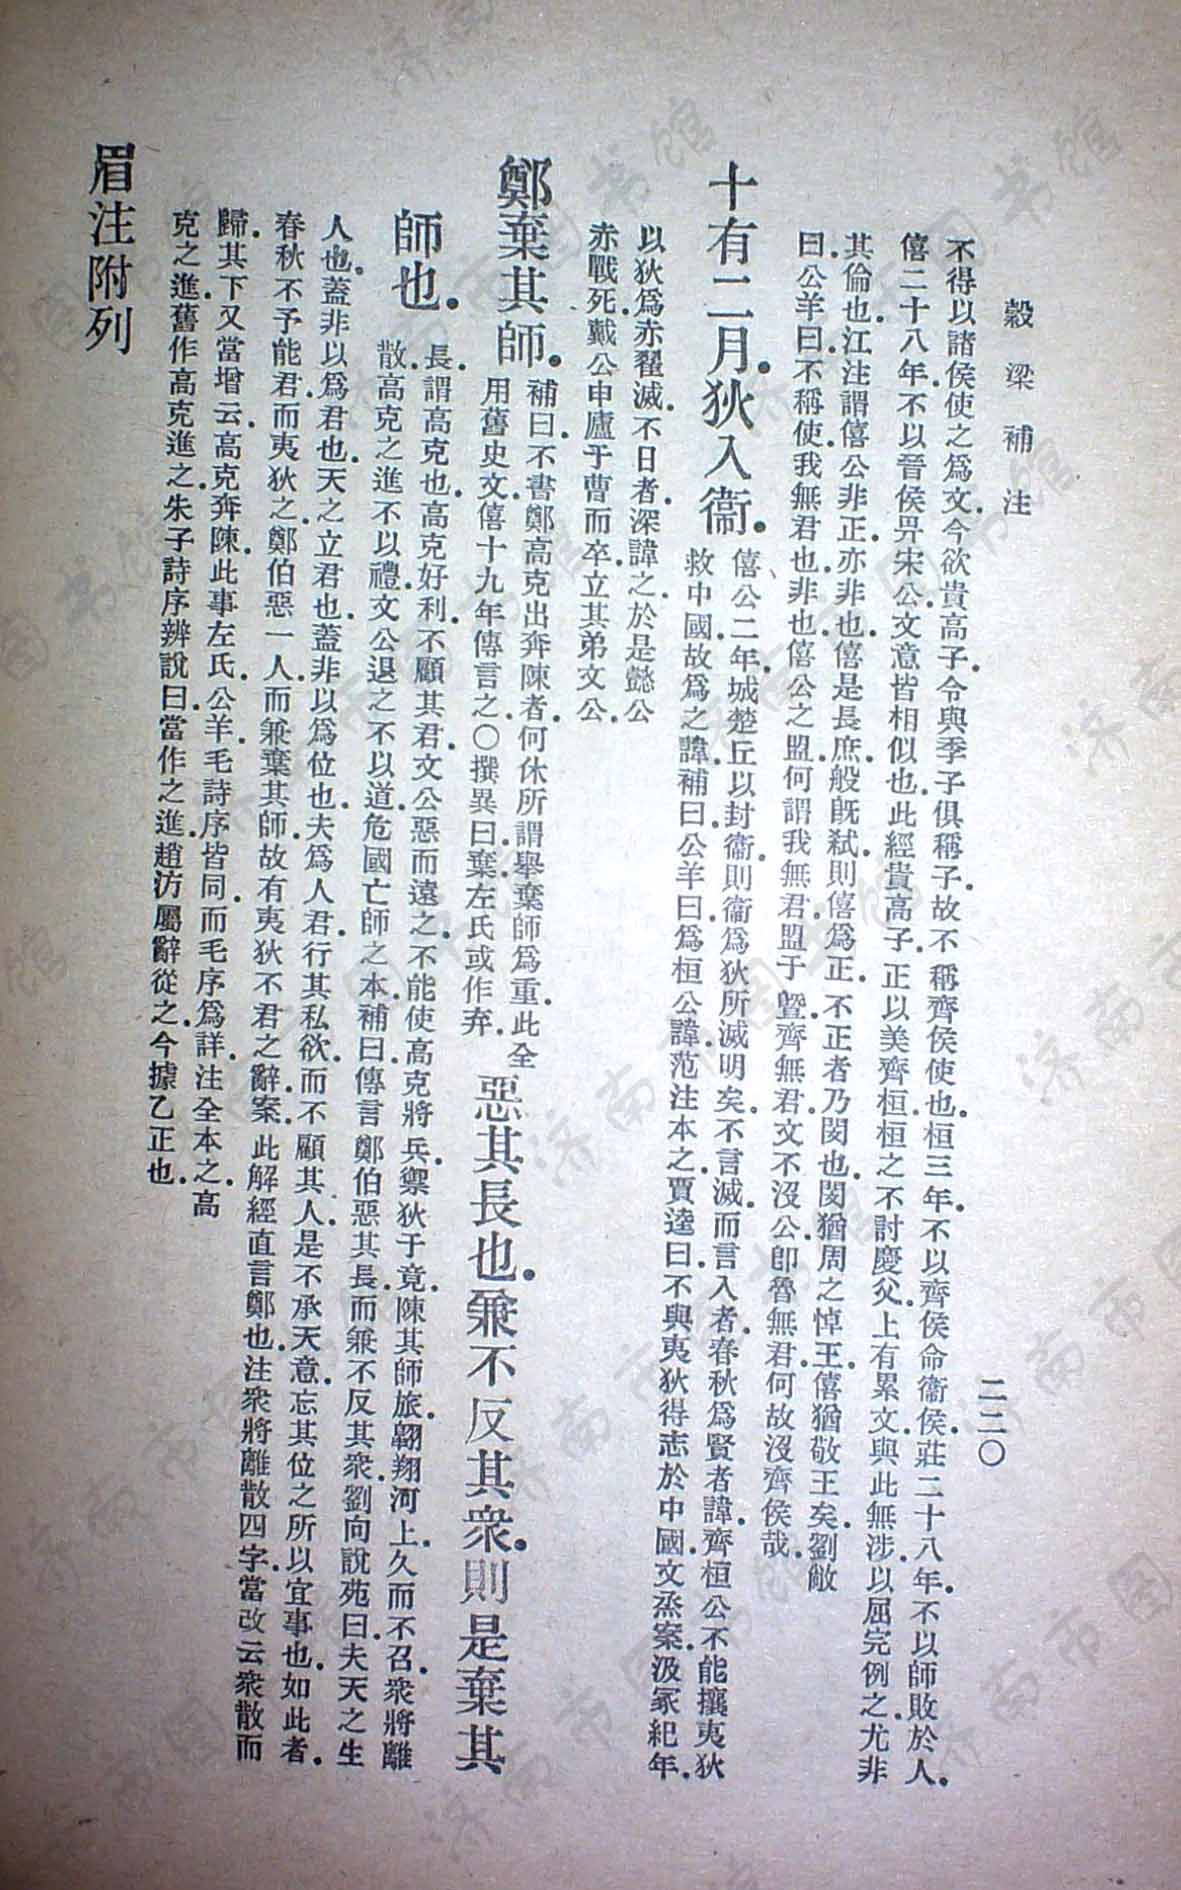 穀梁補注
二二〇
不得以諸侯使之爲文.今欲貴高子.令與季子俱稱子.故不稱齊侯使也.桓三年.不以齊侯命衞侯.莊二十八年.不以師敗於人.
僖二十八年.不以晉侯畀宋公.文意皆相似也.此經貴高子.正以美齊桓.桓之不討慶父.上有累文.與此無涉.以屈完例之.尤非
其倫也.江注謂僖公非正.亦非也.僖是長庶.般旣弒則僖爲正.不正者乃閔也.閔猶周之悼王.僖猶敬王矣.劉敞
曰.公羊曰.不稱使.我無君也.非也.僖公之盟.何謂我無君.盟于曁.齊無君.文不沒公.卽魯無君.何故沒齊侯哉.
十有二月.狄入衞.
僖公二年.城楚丘以封衞.則衞爲狄所滅明矣.不言滅而言入者.春秋爲賢者諱.齊桓公不能攘夷狄
救中國.故爲之諱.補曰.公羊曰.爲桓公諱.范注本之.賈逵曰.不與夷狄得志於中國.文烝案.汲冢紀年.
以狄爲赤翟.滅不日者.深諱之.於是懿公
赤戰死.戴公申廬于曹而卒.立其弟文公.
鄭棄其師.
補曰.不書鄭高克出奔陳者.何休所謂舉棄師爲重.此全
用舊史文.僖十九年傳言之.〇撰異曰.棄.左氏或作弃.
惡其長也.兼不反其衆.則是棄其
師也.
長.謂高克也.高克好利.不顧其君.文公惡而遠之.不能使高克將兵.禦狄于竟.陳其師旅.翺翔河上.久而不召.衆將離
散.高克之進不以禮.文公退之不以道.危國亡師之本.補曰.傳言鄭伯惡其長.而兼不反其衆.劉向說苑曰.夫天之生
人也.蓋非以爲君也.天之立君也.蓋非以爲位也.夫爲人君.行其私欲.而不顧其人.是不承天意.忘其位之所以宜事也.如此者.
春秋不予能君.而夷狄之.鄭伯惡一人.而兼棄其師.故有夷狄不君之辭.案.此解經直言鄭也.注衆將離散四字.當改云衆散而
歸.其下又當增云.高克奔陳.此事左氏.公羊.毛詩序皆同.而毛序爲詳.注全本之.高
克之進.舊作高克進之.朱子詩序辨說曰.當作之進.趙汸屬辭從之.今據乙正也.
眉注附列